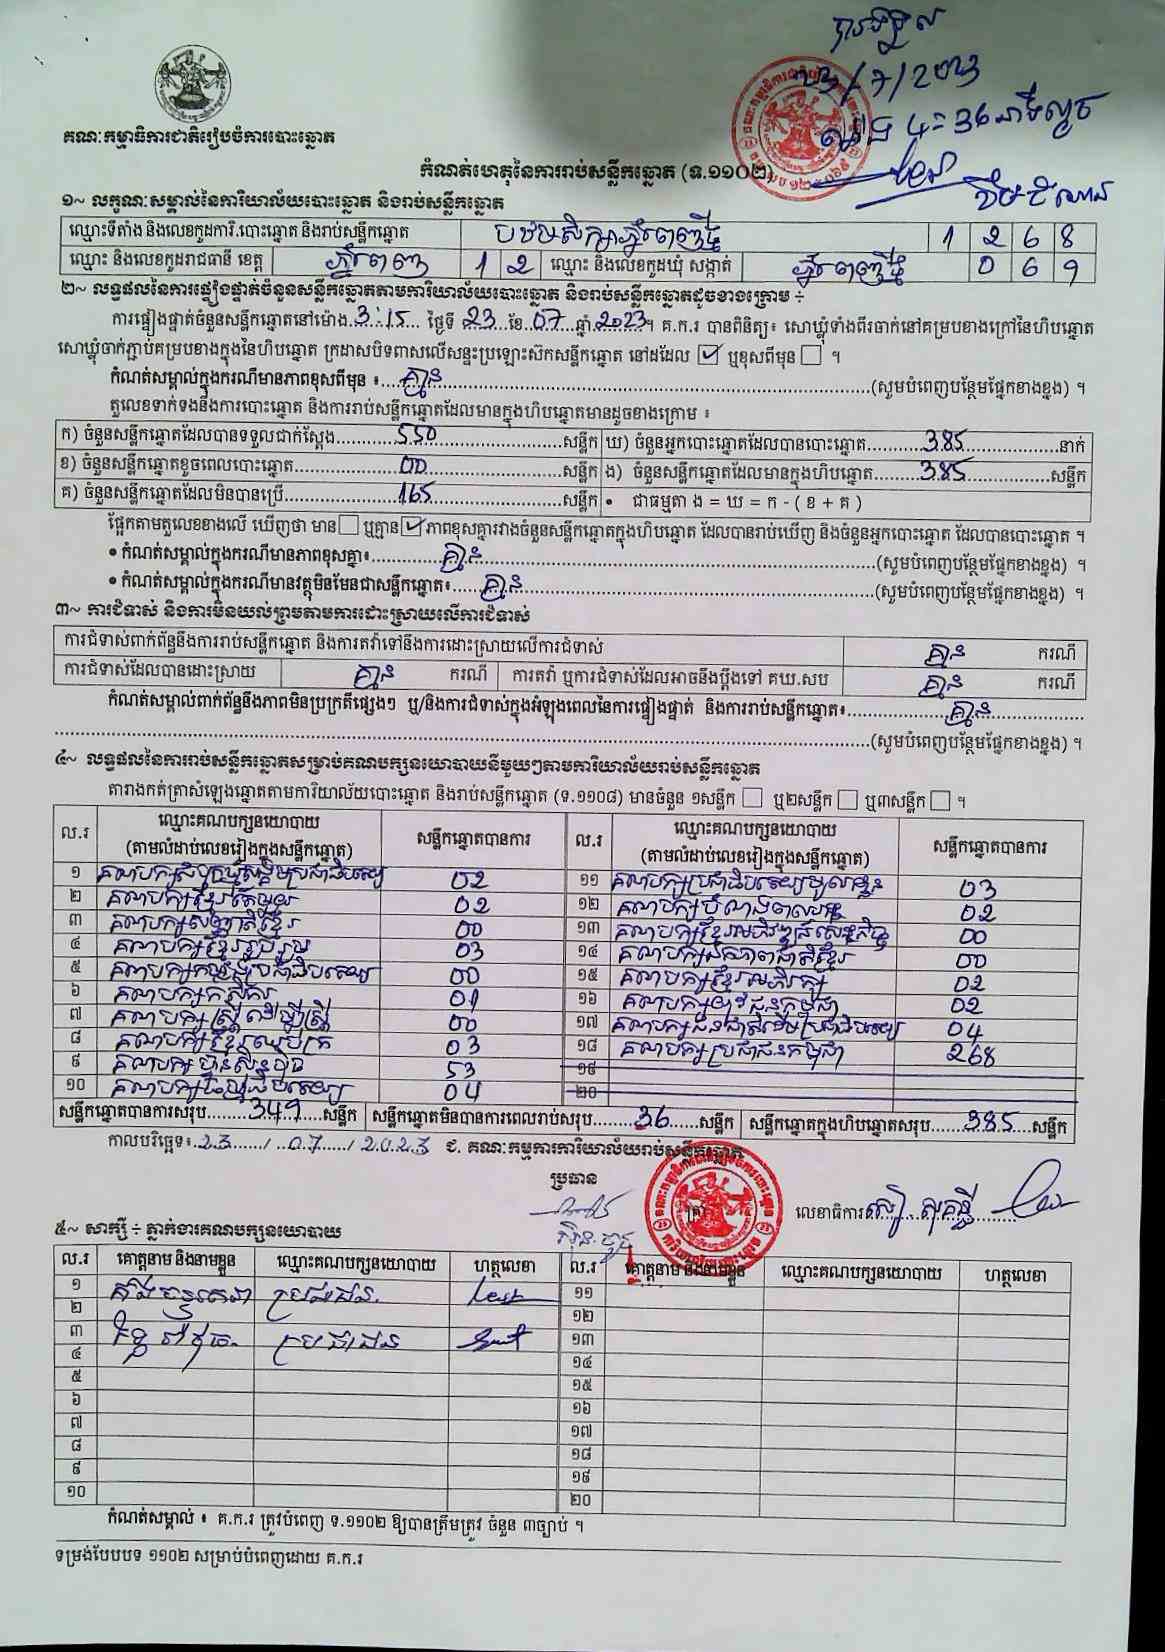 បានទទួល
23/7/2023
ម៉ោង 4:36 នាទីល្ងាច
គណៈកម្មាធិការជាតិរៀបចំការបោះឆ្នោត
កំណត់ហេតុនៃការរាប់សន្លឹកឆ្នោត (ទ.១១០២)
១~ លក្ខណៈសម្គាល់នៃការិយាល័យបោះឆ្នោត និងរាប់សន្លឹកឆ្នោត
ឈ្មោះទីតាំង និងលេខកូដការិ.បោះឆ្នោត និងរាប់សន្លឹកឆ្នោត បឋមសិក្សាភ្នំពេញថ្មី 1 2 6 8
ឈ្មោះ និងលេខកូដរាជធានី ខេត្ត ភ្នំពេញ 1 2 ឈ្មោះ និងលេខកូដឃុំ សង្កាត់ ភ្នំពេញថ្មី 0 6 9
២~ លទ្ធផលនៃការផ្ទៀងផ្ទាត់ចំនួនសន្លឹកឆ្នោតតាមការិយាល័យបោះឆ្នោត និងរាប់សន្លឹកឆ្នោតដូចខាងក្រោម ÷
ការផ្ទៀងផ្ទាត់ចំនួនសន្លឹកឆ្នោតនៅម៉ោង 3:15 ថ្ងៃទី 23 ខែ 07 ឆ្នាំ 2023។ គ.ក.រ បានពិនិត្យ៖ សោឃ្លុំទាំងពីរចាក់នៅគម្របខាងក្រៅនៃហិបឆ្នោត
សោឃ្លុំចាក់ភ្ជាប់គម្របខាងក្នុងនៃហិបឆ្នោត ក្រដាសបិទពាសលើសន្ទះប្រឡោះស៊កសន្លឹកឆ្នោត នៅដដែល ☑ ឬខុសពីមុន ☐ ។
កំណត់សម្គាល់ក្នុងករណីមានភាពខុសពីមុន ៖ គ្មាន (សូមបំពេញបន្ថែមផ្នែកខាងខ្នង) ។
តួលេខទាក់ទងនឹងការបោះឆ្នោត និងការរាប់សន្លឹកឆ្នោតដែលមានក្នុងហិបឆ្នោតមានដូចខាងក្រោម ៖
ក) ចំនួនសន្លឹកឆ្នោតដែលបានទទួលជាក់ស្តែង 550 សន្លឹក ឃ) ចំនួនអ្នកបោះឆ្នោតដែលបានបោះឆ្នោត 385 នាក់
ខ) ចំនួនសន្លឹកឆ្នោតខូចពេលបោះឆ្នោត 00 សន្លឹក ង) ចំនួនសន្លឹកឆ្នោតដែលមានក្នុងហិបឆ្នោត 385 សន្លឹក
គ) ចំនួនសន្លឹកឆ្នោតដែលមិនបានប្រើ 165 សន្លឹក • ជាធម្មតា ង = ឃ = ក - ( ខ + គ )
ផ្អែកតាមតួលេខខាងលើ ឃើញថា មាន ☐ ឬគ្មាន ☑ ភាពខុសគ្នារវាងចំនួនសន្លឹកឆ្នោតក្នុងហិបឆ្នោត ដែលបានរាប់ឃើញ និងចំនួនអ្នកបោះឆ្នោត ដែលបានបោះឆ្នោត ។
• កំណត់សម្គាល់ក្នុងករណីមានភាពខុសគ្នា៖ គ្មាន (សូមបំពេញបន្ថែមផ្នែកខាងខ្នង) ។
• កំណត់សម្គាល់ក្នុងករណីមានវត្ថុមិនមែនជាសន្លឹកឆ្នោត៖ គ្មាន (សូមបំពេញបន្ថែមផ្នែកខាងខ្នង) ។
៣~ ការជំទាស់ និងការមិនយល់ព្រមតាមការដោះស្រាយលើការជំទាស់
ការជំទាស់ពាក់ព័ន្ធនឹងការរាប់សន្លឹកឆ្នោត និងការតវ៉ាទៅនឹងការដោះស្រាយលើការជំទាស់ គ្មាន ករណី
ការជំទាស់ដែលបានដោះស្រាយ គ្មាន ករណី ការតវ៉ា ឬការជំទាស់ដែលអាចនឹងប្តឹងទៅ គឃ.សប គ្មាន ករណី
កំណត់សម្គាល់ពាក់ព័ន្ធនឹងភាពមិនប្រក្រតីផ្សេងៗ ឬ/និងការជំទាស់ក្នុងអំឡុងពេលនៃការផ្ទៀងផ្ទាត់ និងការរាប់សន្លឹកឆ្នោត៖ គ្មាន
(សូមបំពេញបន្ថែមផ្នែកខាងខ្នង) ។
៤~ លទ្ធផលនៃការរាប់សន្លឹកឆ្នោតសម្រាប់គណបក្សនយោបាយនីមួយៗតាមការិយាល័យរាប់សន្លឹកឆ្នោត
តារាងកត់ត្រាសំឡេងឆ្នោតតាមការិយាល័យបោះឆ្នោត និងរាប់សន្លឹកឆ្នោត (ទ.១១០៨) មានចំនួន ១សន្លឹក ☐ ឬ២សន្លឹក ☐ ឬ៣សន្លឹក ☐ ។
ល.រ ឈ្មោះគណបក្សនយោបាយ (តាមលំដាប់លេខរៀងក្នុងសន្លឹកឆ្នោត) សន្លឹកឆ្នោតបានការ ល.រ ឈ្មោះគណបក្សនយោបាយ (តាមលំដាប់លេខរៀងក្នុងសន្លឹកឆ្នោត) សន្លឹកឆ្នោតបានការ
១ គណបក្សសំបុកឃ្មុំសង្គមប្រជាធិបតេយ្យ 02 ១១ គណបក្សប្រជាធិបតេយ្យមូលដ្ឋាន 03
២ គណបក្សខ្មែរតែមួយ 02 ១២ គណបក្ស 02
៣ គណបក្សសញ្ជាតិខ្មែរ 00 ១៣ គណបក្សខ្មែរអភិវឌ្ឍន៍សេដ្ឋកិច្ច 00
៤ គណបក្សខ្មែររួបរួម 03 ១៤ គណបក្សឯកភាពជាតិខ្មែរ 00
៥ គណបក្សកម្លាំងប្រជាធិបតេយ្យ 00 ១៥ គណបក្សខ្មែរអភិរក្ស 02
៦ គណបក្សកសិករ 01 ១៦ គណបក្សយុវជនកម្ពុជា 02
៧ គណបក្សស្ត្រីដើម្បីស្ត្រី 00 ១៧ គណបក្សជនជាតិដើមប្រជាធិបតេយ្យ 04
៨ គណបក្សខ្មែរឈប់ក្រ 03 ១៨ គណបក្សប្រជាជនកម្ពុជា 268
៩ គណបក្សហ៊្វុនស៊ិនប៉ិច 53 ១៩
១០ គណបក្សធម្មាធិបតេយ្យ 04 ២០
សន្លឹកឆ្នោតបានការសរុប 349 សន្លឹក សន្លឹកឆ្នោតមិនបានការពេលរាប់សរុប 36 សន្លឹក សន្លឹកឆ្នោតក្នុងហិបឆ្នោតសរុប 385 សន្លឹក
កាលបរិច្ឆេទ៖ 23 / 07 / 2023 ជ. គណៈកម្មការការិយាល័យរាប់សន្លឹកឆ្នោត
ប្រធាន
លេខាធិការ
៥~ សាក្សី ÷ ភ្នាក់ងារគណបក្សនយោបាយ
ល.រ គោត្តនាម និងនាមខ្លួន ឈ្មោះគណបក្សនយោបាយ ហត្ថលេខា ល.រ គោត្តនាម និងនាមខ្លួន ឈ្មោះគណបក្សនយោបាយ ហត្ថលេខា
១ ប្រជាជន ១១
២ ១២
៣ ប្រជាជន ១៣
៤ ១៤
៥ ១៥
៦ ១៦
៧ ១៧
៨ ១៨
៩ ១៩
១០ ២០
កំណត់សម្គាល់ ៖ គ.ក.រ ត្រូវបំពេញ ទ.១១០២ ឱ្យបានត្រឹមត្រូវ ចំនួន ៣ច្បាប់ ។
ទម្រង់បែបបទ ១១០២ សម្រាប់បំពេញដោយ គ.ក.រ